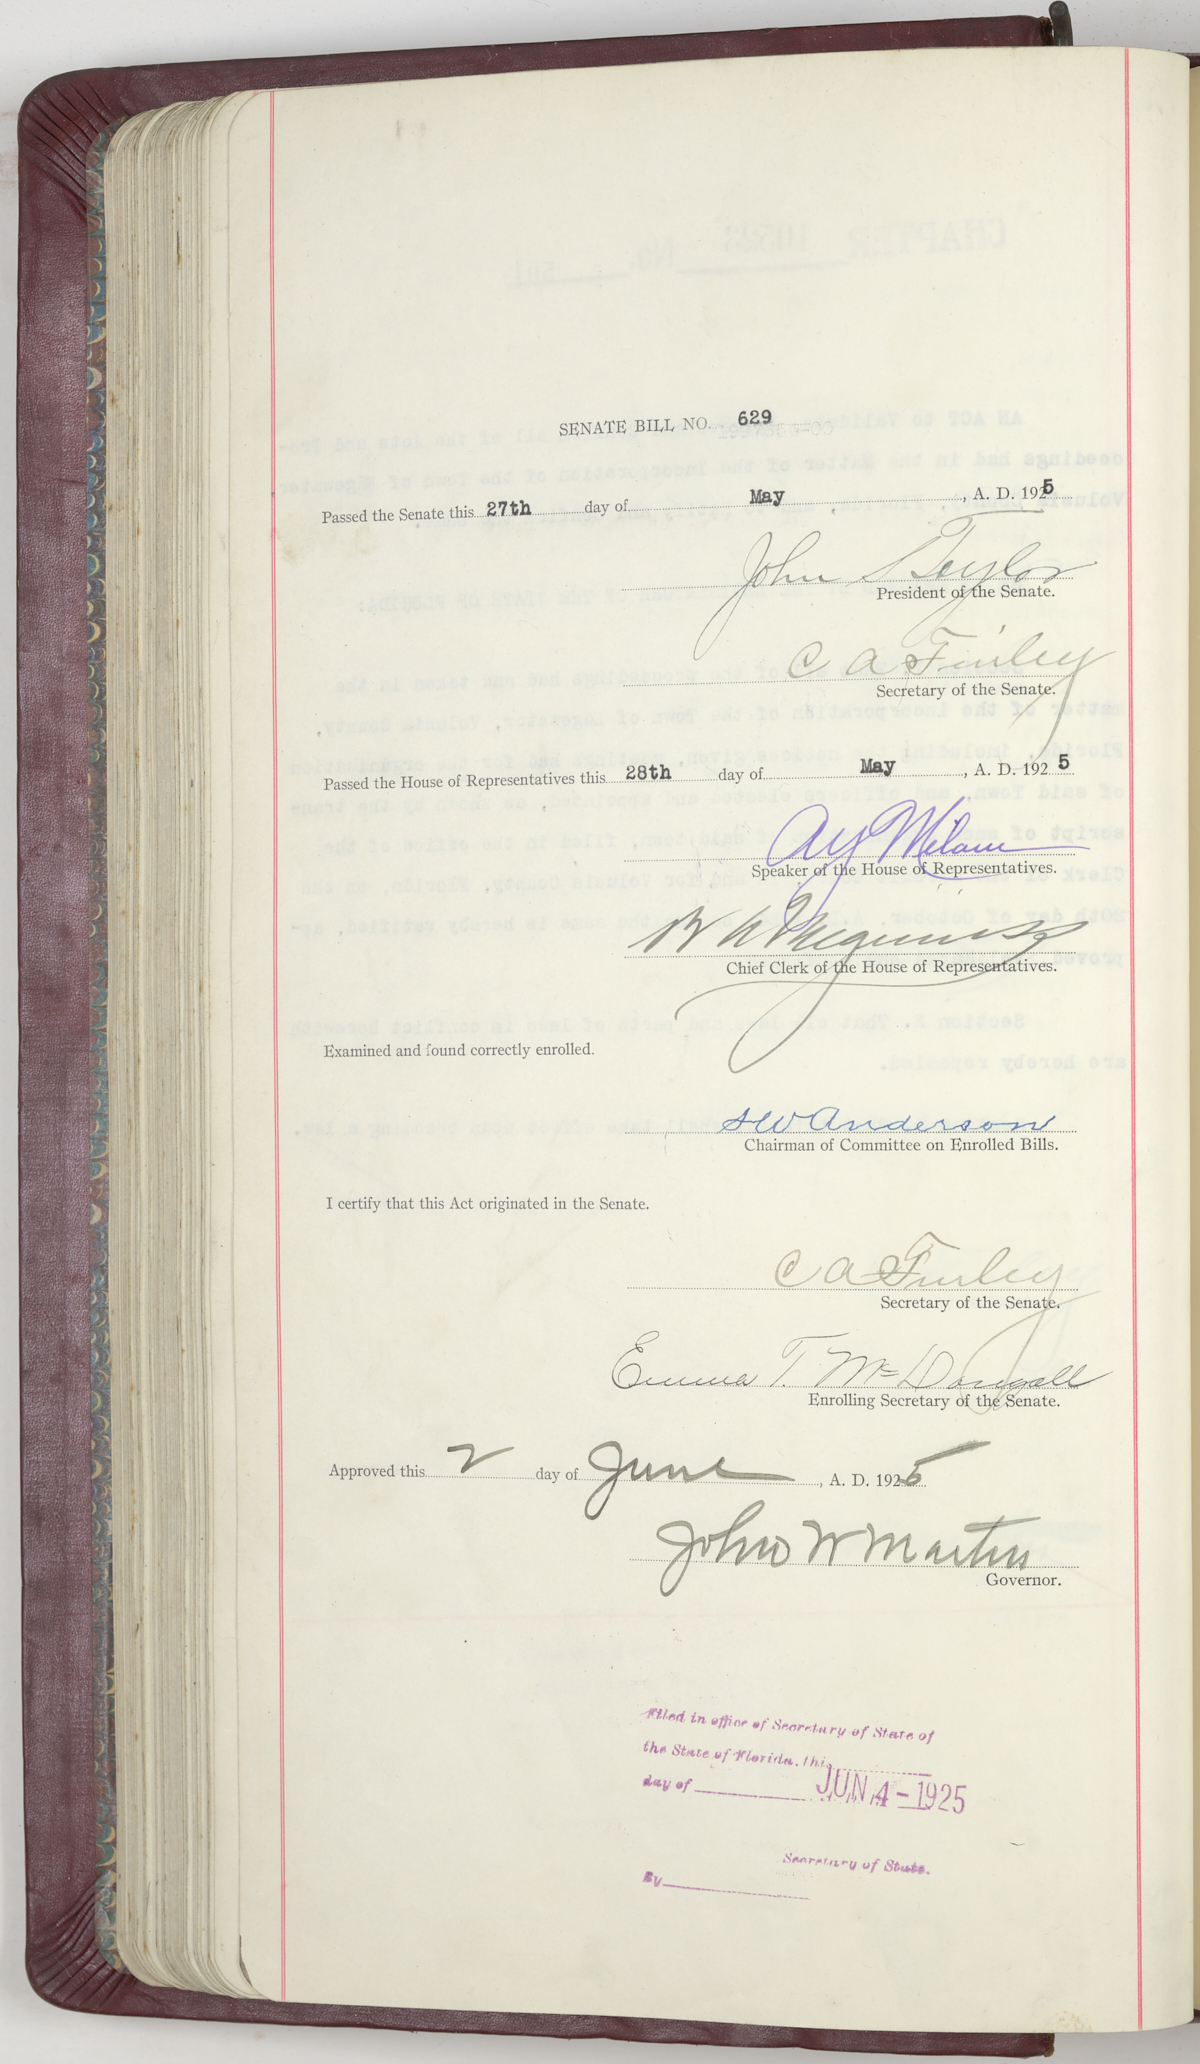 SENATE BILL NO. 629
Passed the Senate this 27th day of May, A. D. 1925
John S Taylor
President of the Senate.
C A Finley
Secretary of the Senate.
Passed the House of Representatives this 28th day of May, A. D. 1925
A Y Milam
Speaker of the House of Representatives.
Chief Clerk of the House of Representatives.
Examined and found correctly enrolled.
SW Anderson
Chairman of Committee on Enrolled Bills.
I certify that this Act originated in the Senate.
C A Finley
Secretary of the Senate.
Emma T. McDougall
Enrolling Secretary of the Senate.
Approved this 2 day of June, A. D. 1925
John W Martin
Governor.
Filed in office of Secretary of State of
the State of Florida, this
day of JUN 4 - 1925
Secretary of State.
By